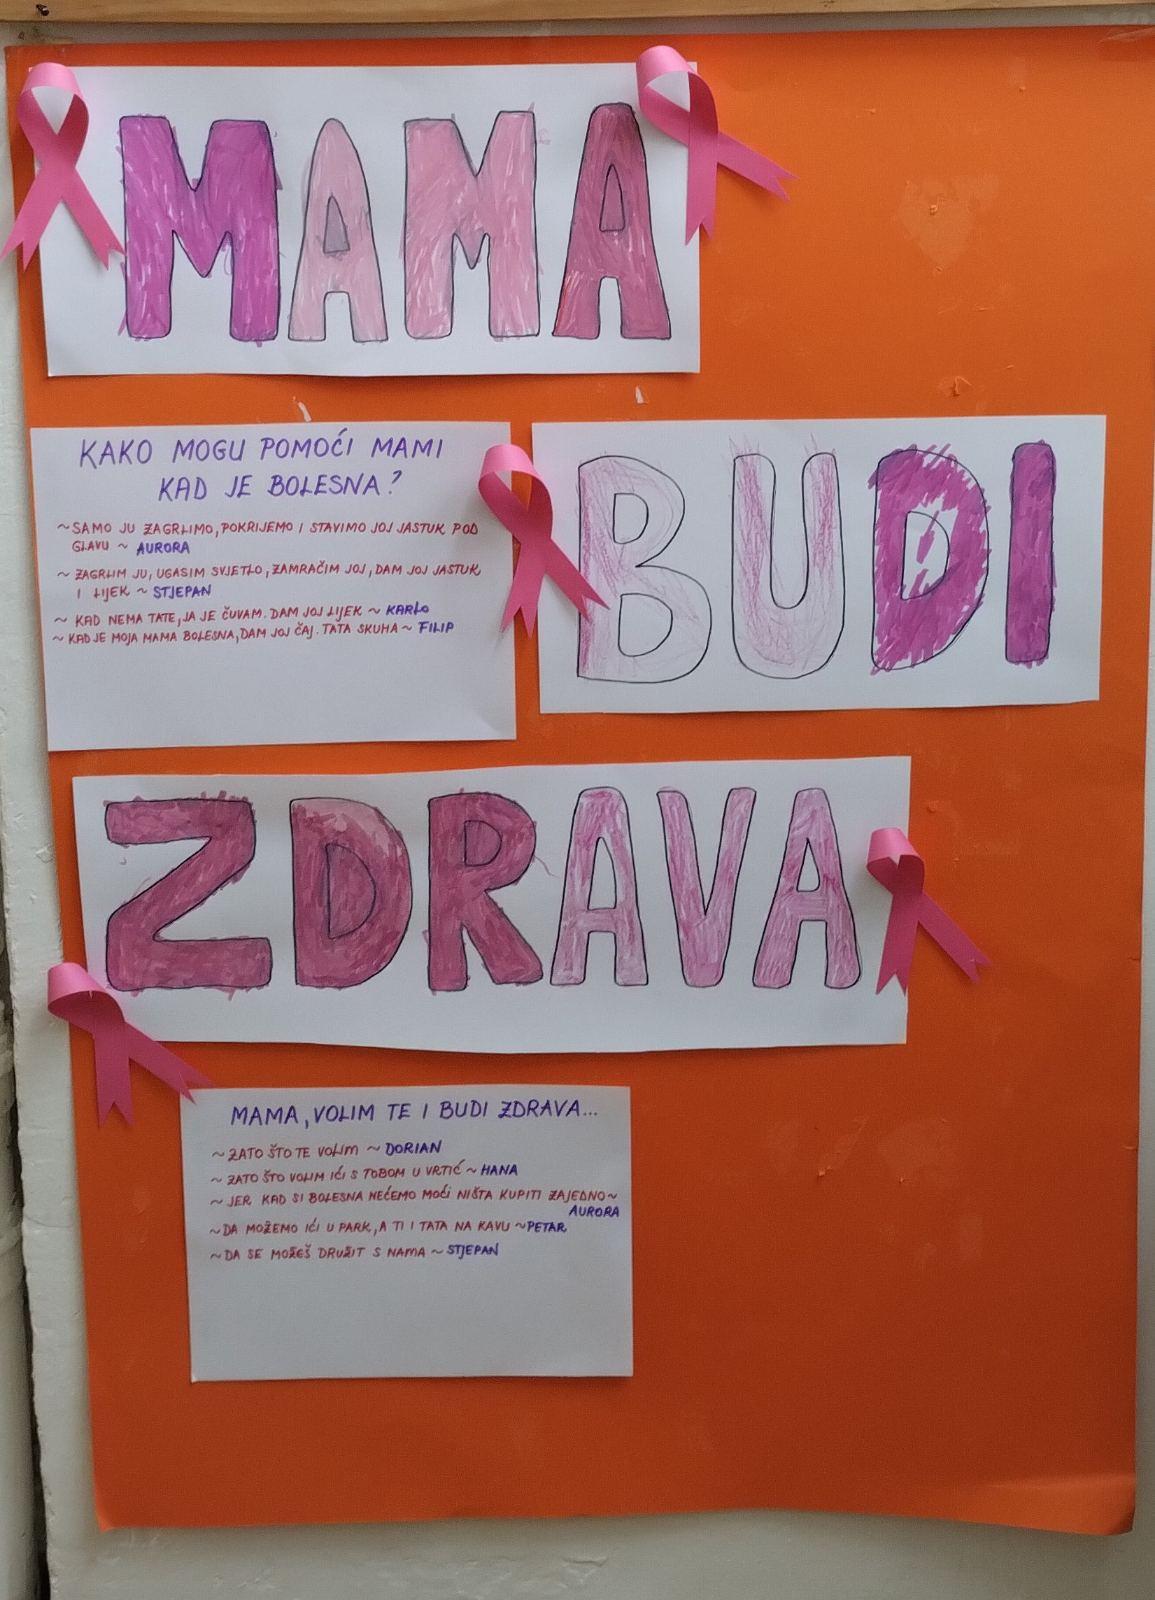 MAMA
KAKO MOGU POMOĆI MAMI
KAD JE BOLESNA?
~SAMO JU ZAGRLIMO, POKRIJEMO I STAVIMO JOJ JASTUK POD
GLAVU ~ AURORA
~ ZAGRLIM JU, UGASIM SVJETLO, ZAMRAČIM JOJ, DAM JOJ JASTUK
I LIJEK ~ STJEPAN
~ KAD NEMA TATE, JA JE ČUVAM. DAM JOJ LIJEK ~ KARLO
~ KAD JE MOJA MAMA BOLESNA, DAM JOJ ČAJ. TATA SKUHA ~ FILIP
BUDI
ZDRAVA
MAMA, VOLIM TE I BUDI ZDRAVA...
~ ZATO ŠTO TE VOLIM ~ DORIAN
~ ZATO ŠTO VOLIM IĆI S TOBOM U VRTIĆ ~ HANA
~ JER KAD SI BOLESNA NEĆEMO MOĆI NIŠTA KUPITI ZAJEDNO ~
AURORA
~ DA MOŽEMO IĆI U PARK, A TI I TATA NA KAVU ~ PETAR
~ DA SE MOŽEŠ DRUŽIT S NAMA ~ STJEPAN